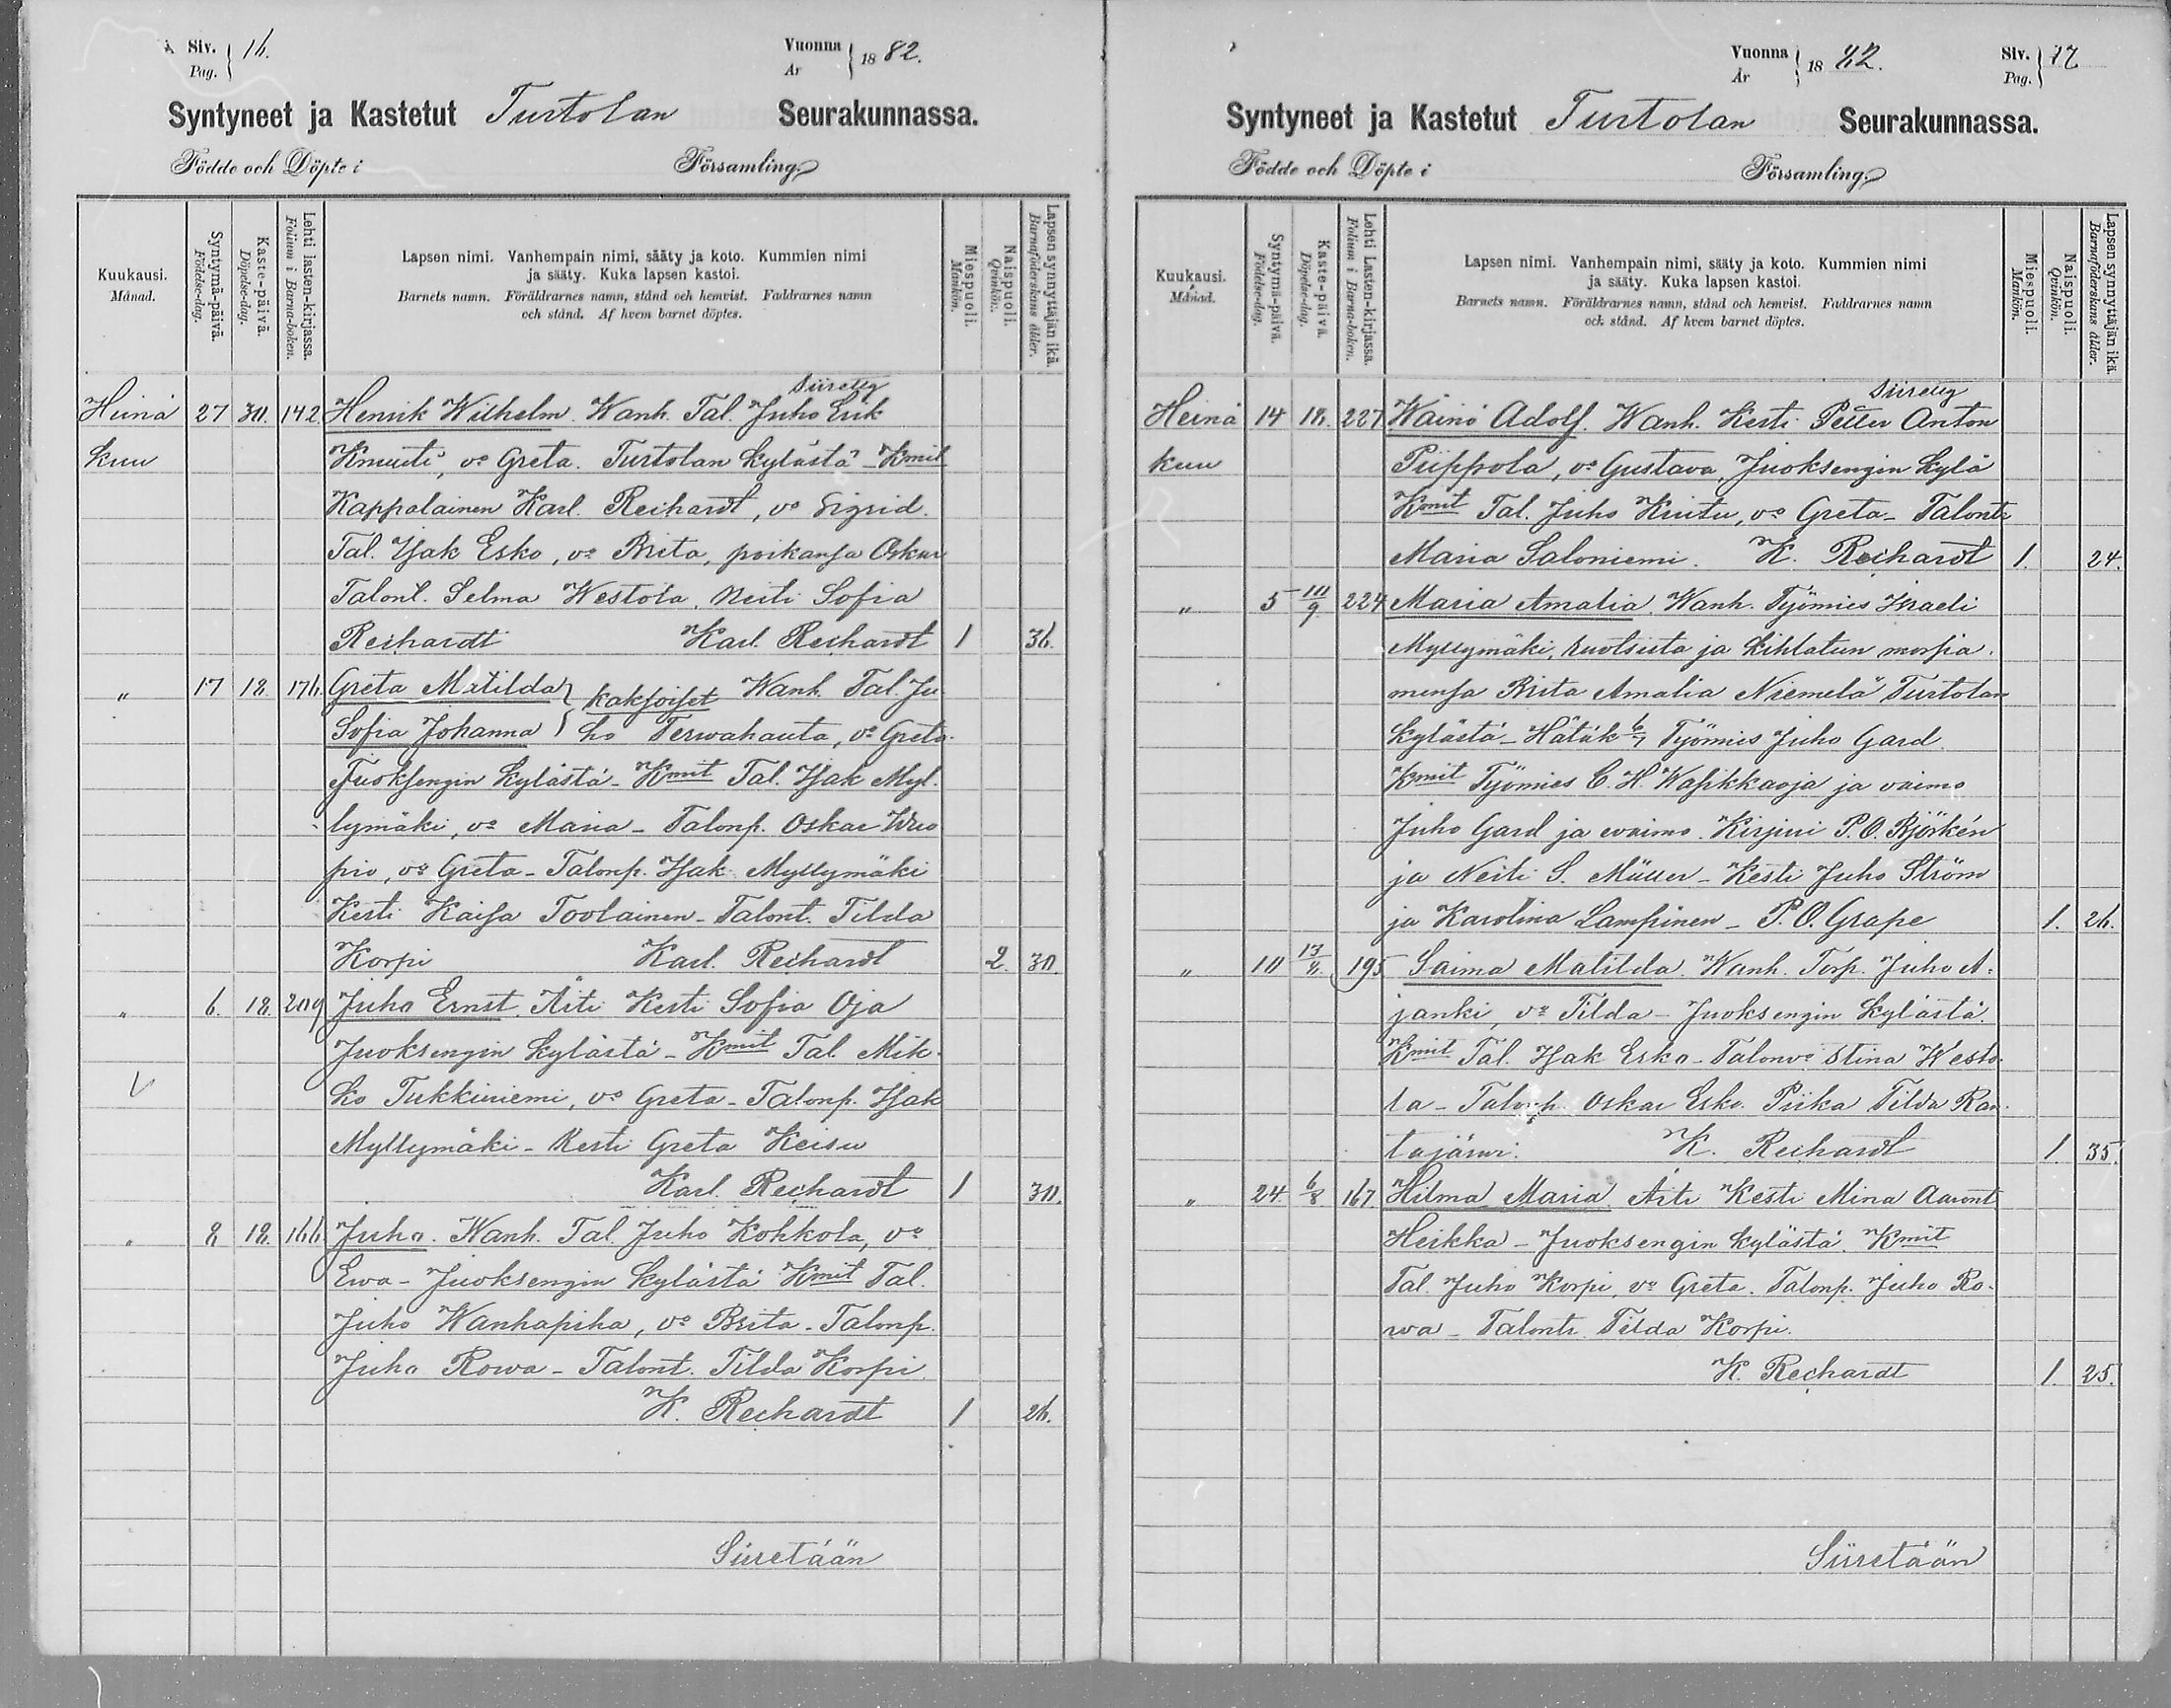 Siv. Pag. } 16.
Vuonna År } 1882.
Syntyneet ja Kastetut Turtolan Seurakunnassa.
Födde och Döpte i Församling.
Kuukausi. Månad.
Syntymä-päivä. Födelse-dag.
Kaste-päivä. Döpelse-dag.
Lehti lasten-kirjassa. Folium i Barna-boken.
Lapsen nimi. Vanhempain nimi, sääty ja koto. Kummien nimi
ja sääty. Kuka lapsen kastoi.
Barnets namn. Föräldrarnes namn, stånd och hemvist. Faddrarnes namn
och stånd. Af hvem barnet döptes.
Miespuoli. Mankön.
Naispuoli. Qvinkön.
Lapsen synnyttäjän ikä. Barnaföderskans ålder.
Siirettg
Heinä 27 30. 142 Henrik Wilhelm. Wanh. Tal. Juho Erik
kuu Kmuuti, vo Greta. Turtolan kylästä - Kmit
Kappalainen Karl Rechardt, vo Sigrid.
Tal. Isak Esko, vo Brita, poikansa Oskar
Talont. Selma Westola, Neiti Sofia
Rechardt Karl Rechardt 1 36.
" 17 18. 176. Greta Matilda } kaksoiset Wanh. Tal. Ju-
Sofia Johanna } ho Terwahauta, vo Greta.
Juoksengin kylästä - Kmit Tal. Isak Myl-
lymäki, vo Maria - Talonp. Oskar Wuo
pio, vo Greta - Talonp. Isak Myllymäki
Kesti Kaisa Toolainen - Talont. Tilda
Korpi Karl. Rechardt 2. 30.
" 6. 18. 209 Juho Ernst. Äiti Kesti Sofia Oja
Juoksengin kylästä - Kmit Tal. Mik-
ko Tukkiniemi, vo Greta - Talonp. Isak
Myllymäki - Kesti Greta Keisu
Karl. Rechardt 1 30.
" 8 18. 166. Juho. Wanh. Tal. Juho Kohkola, vo
Ewa - Juoksengin kylästä Kmit Tal.
Juho Wanhapiha, vo Brita - Talonp.
Juho Rowa - Talont. Tilda Korpi
K. Rechardt 1 26.
Siiretään
Vuonna År } 1882.
Siv. Pag. } 17
Syntyneet ja Kastetut Turtolan Seurakunnassa.
Födde och Döpte i Församling.
Kuukausi. Månad.
Syntymä-päivä. Födelse-dag.
Kaste-päivä. Döpelse-dag.
Lehti Lasten-kirjassa. Folium i Barna-boken.
Lapsen nimi. Vanhempain nimi, sääty ja koto. Kummien nimi
ja sääty. Kuka lapsen kastoi.
Barnets namn. Föräldrarnes namn, stånd och hemvist. Faddrarnes namn
och stånd. Af hvem barnet döptes.
Miespuoli. Mankön.
Naispuoli. Qvinkön.
Lapsen synnyttäjän ikä. Barnaföderskans ålder.
Siirettg
Heinä 14 18. 227 Wäinö Adolf. Wanh. Kesti Petter Anton
kuu Piippola, vo Gustava, Juoksengin kylä
Kmit Tal. Juho Kruitu, vo Greta - Talontr
Maria Saloniemi. K. Rechardt 1. 24.
" 5 10/9. 224 Maria Amalia. Wanh. Työmies Israeli
Myllymäki, ruotsista ja kihlatun morsia-
mensa Brita Amalia Niemelä Turtolan
kylästä - Hätäk 6/7 Työmies Juho Gard.
Kmit Työmies C. H. Wasikkaoja ja vaimo
Juho Gard ja waimo. Kirjuri P. O. Björkén
ja Neiti S. Müller - Kesti Juho Ström
ja Karolina Lampinen - P. O. Grape 1. 26.
" 10 13/8. 195 Saima Matilda. Wanh. Torp. Juho A-
janki, vo Tilda - Juoksengin kylästä.
Kmit Tal. Isak Esko - Talonvo Stina Westo-
la - Talonp. Oskar Esko. Piika Tilda Ran-
tajärvi. K. Rechardt 1. 35.
" 24 6/8 167. Hilma Maria. Äiti Kesti Mina Aaront
Heikka - Juoksengin kylästä. Kmit
Tal. Juho Korpi, vo Greta. Talonp. Juho Ro-
wa - Talontr. Tilda Korpi.
K. Rechardt 1. 25.
Siiretään